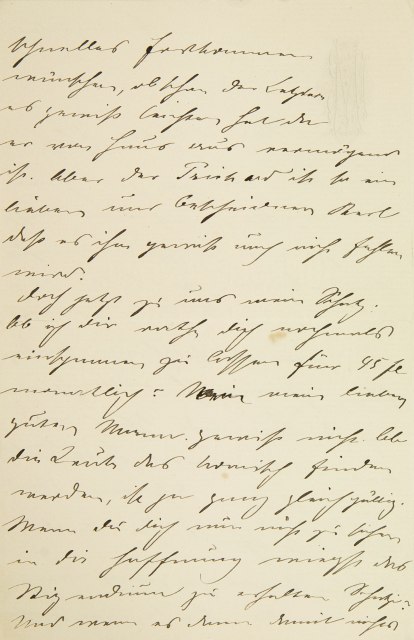 schnelles Fortkommen
wünschen, obschon der Letztere
es gewiß leichter hat da
er von Haus aus vermögend
ist. Aber der ist so ein
lieber und bescheidener Kerl
daß es ihm gewiß auch nicht fehlen
wird.
Doch jetzt zu uns mein Schatz.
Ob ich dir rathe dich nochmals
zu lassen für 45 fl
monatlich? Nein mein lieber
guter Mann. gewiß nicht. Ob
die Leute das komisch finden
werden, ist ja ganz gleichgültig.
Wenn du dich nun nicht zu sehr
in die Hoffnung wiegst das
Stipendium zu erhalten Schatzi?
Und wenn es dann damit nichts